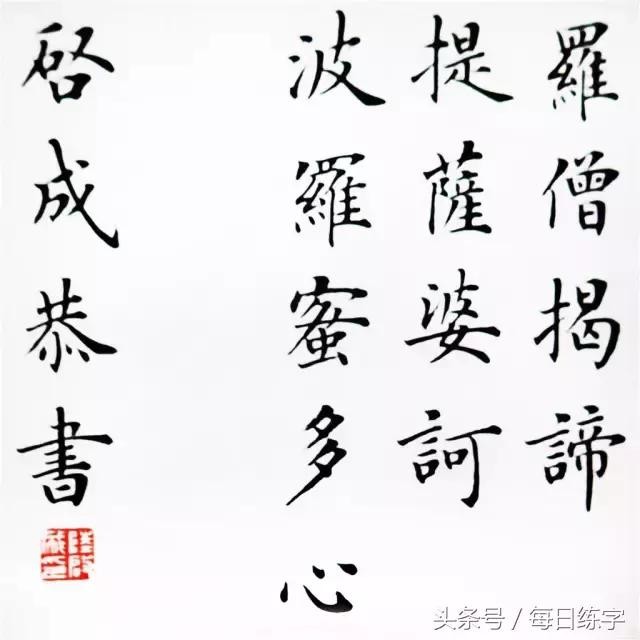 羅僧揭諦
提薩婆訶
波羅蜜多心
啓成恭書
头条号 / 每日练字